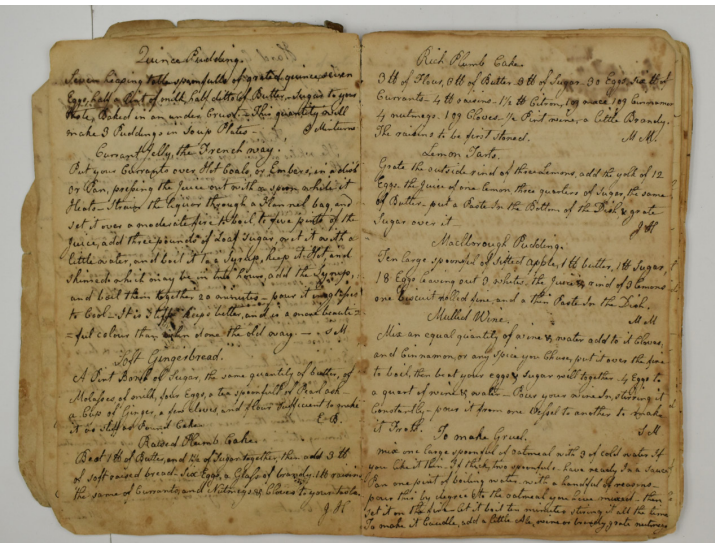 Quince Pudding.
Seven heaping table spoonfulls of grated quince, seven
Eggs, half a Pint of milk, half ditto of Butter - Sugar to your
taste, Baked in an under Crust. - This quantity will
make 3 Puddings in Soup Plates -
Currant Jelly, the French way.
Put your Currants over Hot Coals, or Embers, in a dish
or Pan, pressing the Juice out with a spoon, while it
Heats - Strain the liquor through a Flannel bag, and
set it over a moderate fire to boil, to five pints of the
Juice, add three pounds of Loaf Sugar, wet it with a
little water, and boil it to a Syrup, keep it Hot, and
skimed which may be in half hours, add the Syrup,
and boil them together 20 minutes - pour it in glasses
to Cool - This keeps better, and is a more beauti=
=ful colour than when done the old way - S M
Soft Gingerbread.
A Pint Bowl of Sugar, the same quantity of butter, of
Molasses of milk, four Eggs, a tea spoonfull of Pearl ash
a Cup of Ginger, a few cloves, and flour sufficient to make
it as stiff as Pound Cake. E-B.
Raised Plumb Cake.
Beat 1 lb of Butter, and of Sugar together, then add 3 lb
of soft raised bread. Six Eggs, a Glass of brandy. 1 lb raisins
the same of Currants, and Nutmegs & Cloves to your taste.
Rich Plumb Cake
3 lb of Flour, 3 lb of Butter 3 lb of Sugar. 30 Eggs, six lb of
Currants - 4 lb raisins - 1½ lb Citron, 1 oz mace, 1 oz Cinnamon
4 nutmegs. 1 oz Cloves. ½ Pint wine, a little Brandy.
The raisins to be first stoned. M M.
Lemon Tarts.
Grate the outside rind of three Lemons, add the yolk of 12
Eggs. the Juice of one lemon three quarters of Sugar, the same
of Butter. put a Paste in the Bottom of the Dish & grate
Sugar over it -
Marlborough Pudding.
Ten large spoonful of sifted apple, 1 lb butter, 1 lb Sugar,
18 Eggs leaving out 9 whites, the Juice & rind of 3 lemons
one biscuit rolled fine, and a thin Paste in the Dish.
M M
Mulled Wine.
Mix an equal quantity of wine & water add to it Cloves,
and Cinnamon, or any Spice you Chuse, put it over the fire
to boil, then beat your eggs & Sugar well together - 4 Eggs to
a quart of wine & water - Pour your wine in, stirring it
Constantly - pour it from one Vessel to another to make
it Froth. S. M
To make Gruel.
mix one large spoonful of oatmeal with 3 of cold water If
you Like it thin, If thick, two spoonfuls - have ready in a Sauce
Pan one pint of boiling water, with a handful of reasons -
pour this by degree to the oatmeal you have mixed - then
set it on the fire - let it boil ten minutes stiring it all the time
To make it Caudle, add a little Ale, wine or brandy, grate nutmeg